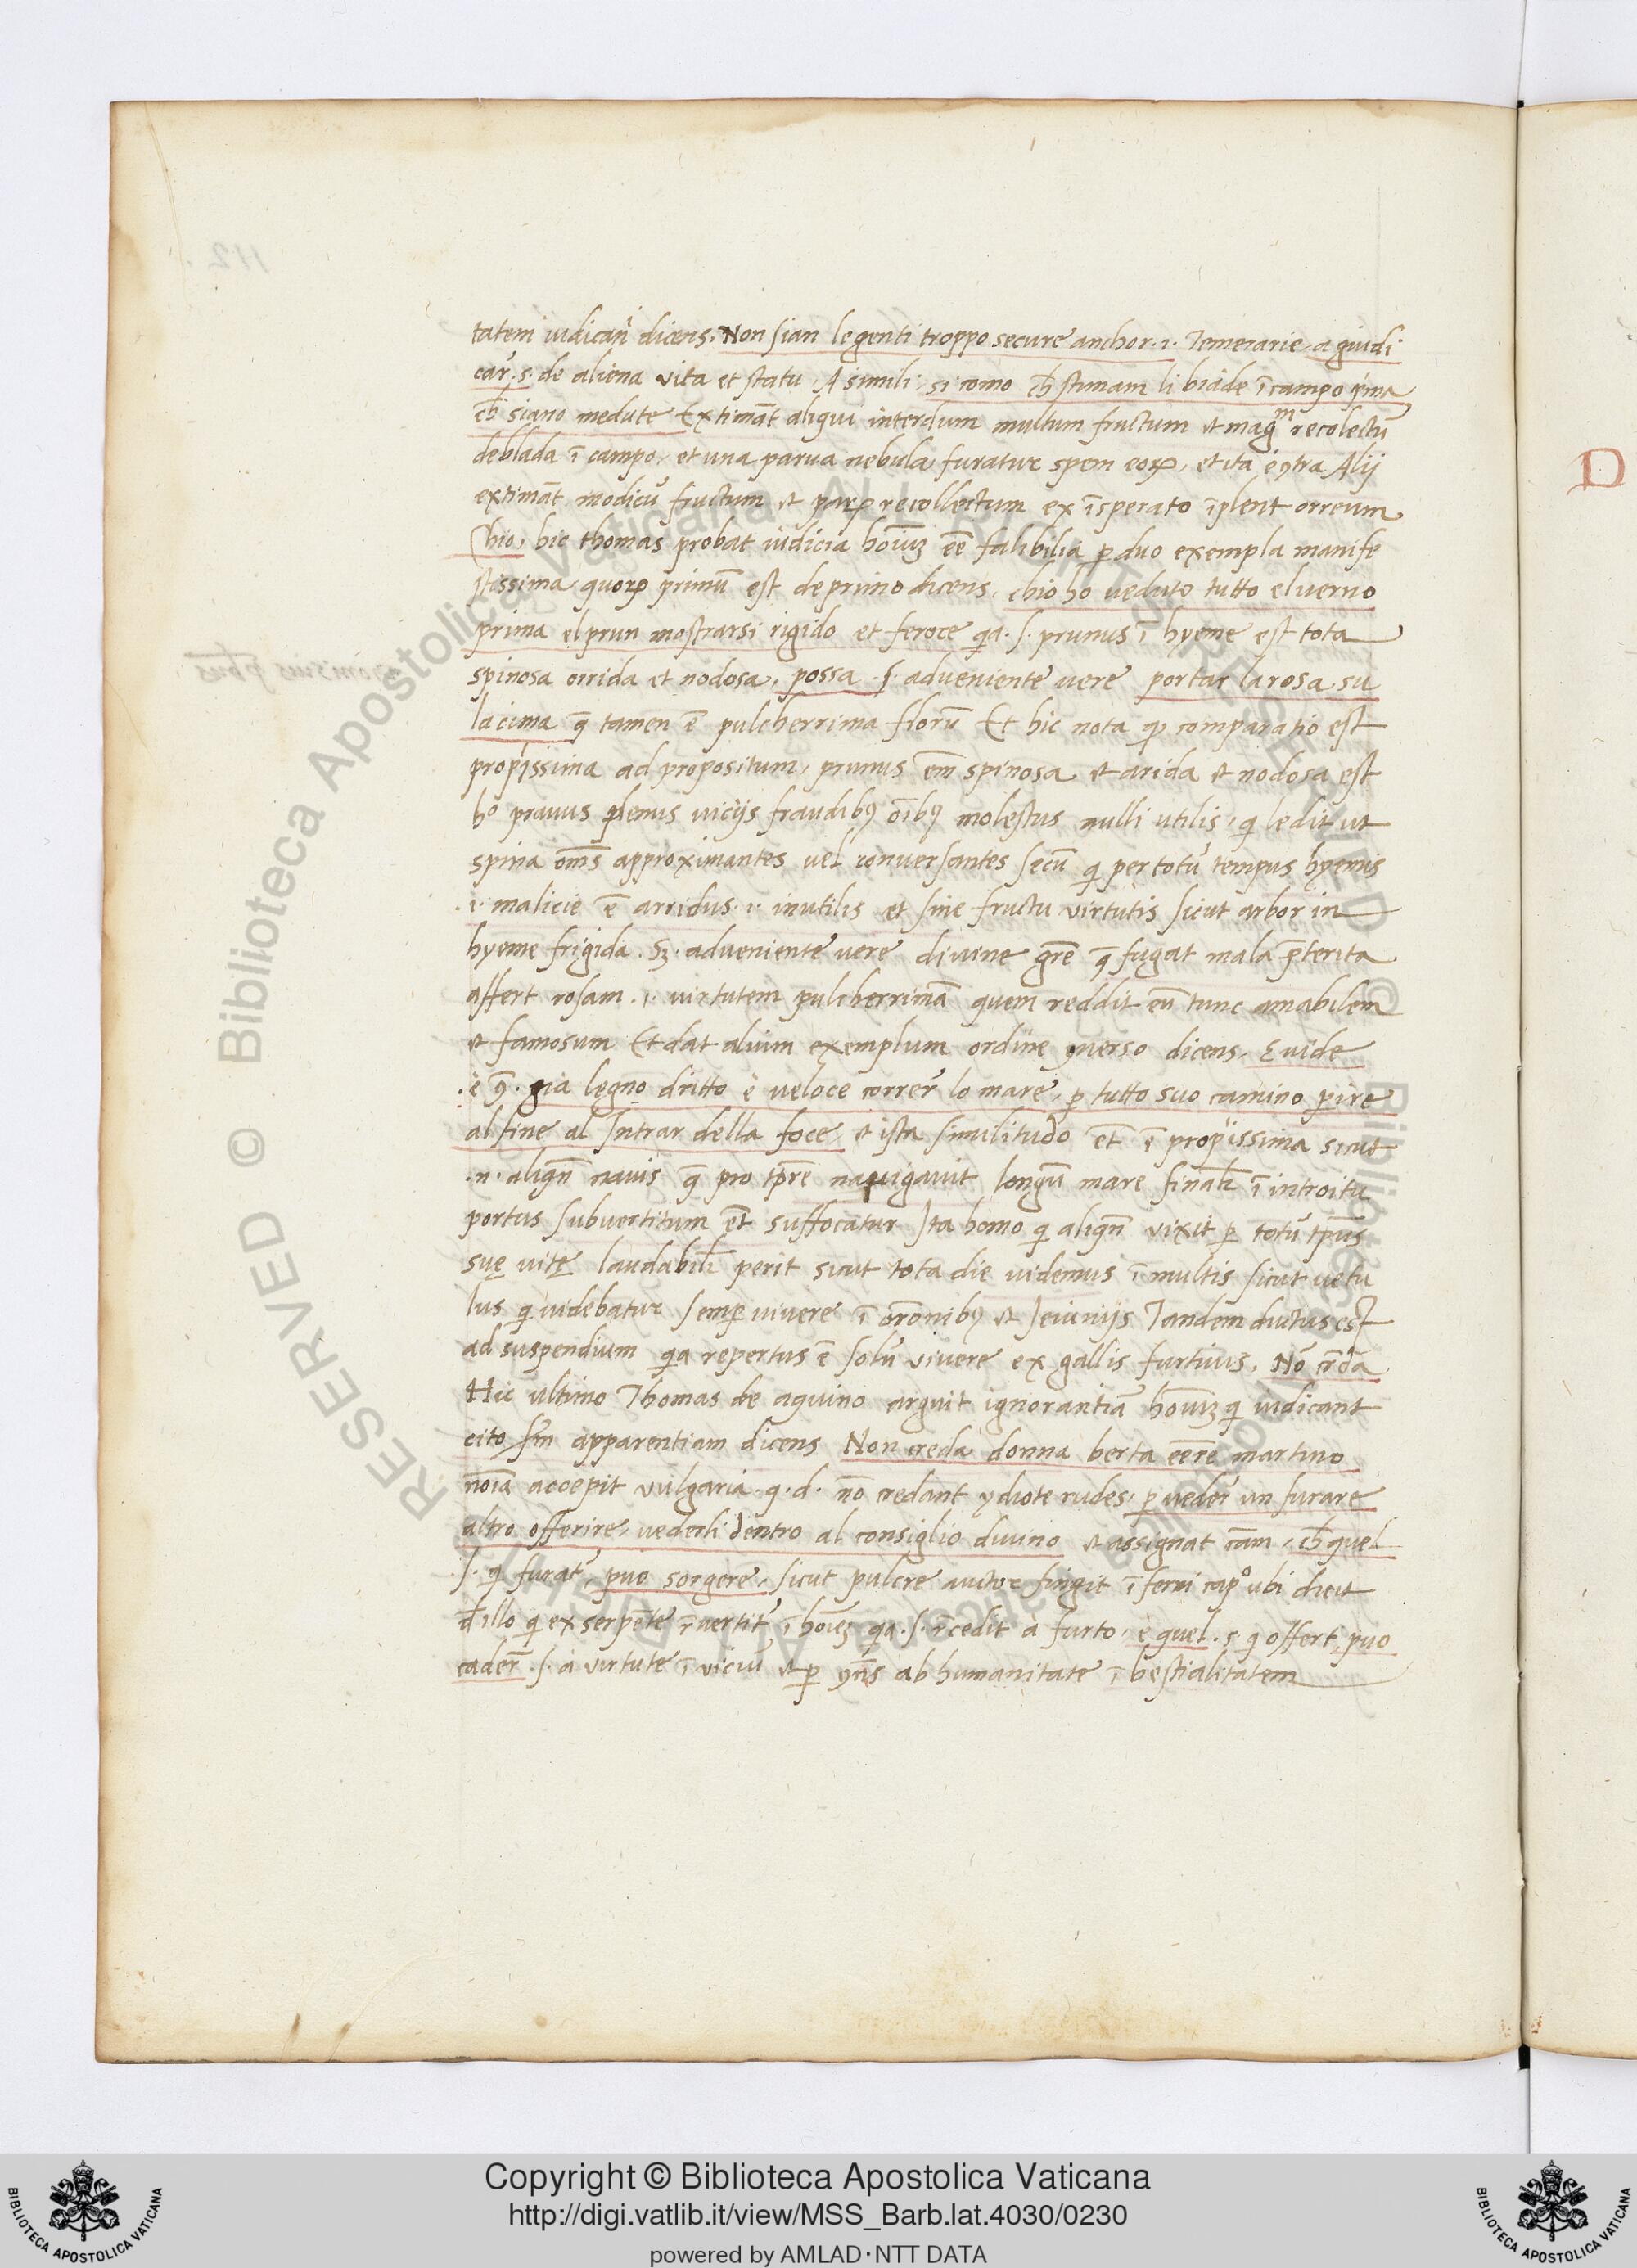 tatem iudicanī dicens. Non sian le genti troppo secure anchor .i. Temerarie a guidi
car̄ .s. de aliena vita et statu. A simili, si como ch̄ stimam li biade ī campo p̄ma
ch̄ siano medute Extimāt aliqui interdum multum fructum et magm̄ recolectū
deblada ī campo, et una parva nebula furatur spem eoꝝ, et ita ē ꝯtra Alij
extimāt modicū fructum et parꝝ recollectum ex īsperato īplent orreum
Chio, hic thomas probat iudicia hoīuꝫ eē falibilia ꝑ duo exempla manife
stissima quoꝝ primū est de primo dicens, chio ho veduto tutto el verno
prima el prun mostrarsi rigido et feroce q̄a .s. prunus ī hyeme est tota
spinosa orrida et nodosa, possa .s. adveniente vere portar la rosa su
la cima q̄ tamen ē pulcherrima florū Et hic nota ꝙ comparatio est
propijssima ad propositum, prunus em̄ spinosa et arida et nodosa est
ho pravus plenus viciis fraudibꝰ oībꝰ molestus nulli utilis, q̄ ledit ut
spina om̄s approximantes vel conversantes secū q̄ per totū tempus hyemis
.i. malicie ē arridus .i. inutilis et sine fructu virtutis sicut arbor in
hyeme frigida. Sꝫ adveniente vere divine gr̄e q̄ fugat mala p̄terita
affert rosam .i. virtutem pulcherrimā quem reddit eū tunc amabilem
et famosum Et dat alium exemplum ordine ꝯverso dicens. E vide
.i. ꝯ. gia legno dritto e veloce correr̄ lo mare, ꝑ tutto suo camino perire
al fine al Intrar della foce, et ista similitudo et̄ ē propijssima sicut
.n. aliqn̄ navis q̄ pro tp̄re navigavit longū mare finalr̄ ī introitu
portus subvertitum et̄ suffocatur Ita homo q̄ aliqn̄ vixit ꝑ totū tp̄us
suę vitę laudabilr̄ perit sicut tota die videmus ī multis sicut vetu
lus q̄ videbatur semꝑ vivere ī orōnibꝰ et Ieiuniis Tandem ductus est
ad suspendium q̄a repertus ē solū vivere ex gallis furtivis. Nō cr̄da
Hic ultimo Thomas de aquino arguit ignorantiā hoīuꝫ q̄ iudicant
cito scm̄ apparentiam dicens Non creda donna berta e sere martino
noīa accepit vulgaria .q.d. nō credant ydiote rudes, ꝑ veder un furare
altro offerire, vederli dentro al consiglio divino et assignat cām, ch̄ quel
.s. q̄ furat̄, puo sorgere, sicut pulcre auctor fingit ī ferni capo ubi dicit
d̄ illo q̄ ex serpēte r̄vertit̄ ī hoīeꝫ q̄a .s. r̄cedit a furto, e quel .s. q̄ offert, puo
cader̄ .s. a virtute ī viciū et ꝑ ꝯn̄s ab humanitate ī bestialitatem
D
Copyright © Biblioteca Apostolica Vaticana
http://digi.vatlib.it/view/MSS_Barb.lat.4030/0230
powered by AMLAD·NTT DATA
BIBLIOTECA APOSTOLICA VATICANA
BIBLIOTECA APOSTOLICA VATICANA